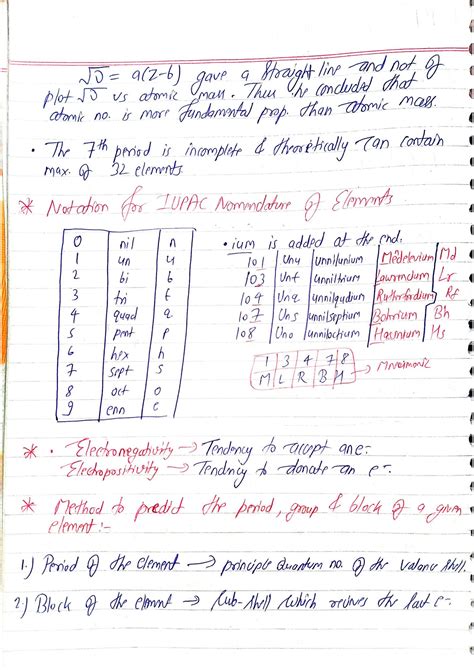 √ν = a(Z-b) gave a straight line and not of
plot √ν vs atomic mass. Thus he concluded that
atomic no. is more fundamental prop. than atomic mass.
• The 7th period is incomplete & theoretically can contain
max. of 32 elements.
* Notation for IUPAC Nomendature of Elements
0 nil n
1 un u
2 bi b
3 tri t
4 quad q
5 pent p
6 hex h
7 sept s
8 oct o
9 enn e
• ium is added at the end.
101 Unu unnilunium Medelevium Md
103 Unt unniltrium Lawrencium Lr
104 Unq unnilquadium Rutherfodium Rf
107 Uns unnilseptium Bohrium Bh
108 Uno unniloctium Hassnium Hs
1 3 4 7 8
M L R B H → Mnemonic
* • Electronegativity → Tendency to accept an e-
Electropositivity → Tendency to donate an e-.
* Method to predict the period, group & block of a given
element:-
1.) Period of the element → principle quantum no. of the valance shell.
2.) Block of the element → Sub-shell which recives the last e-.